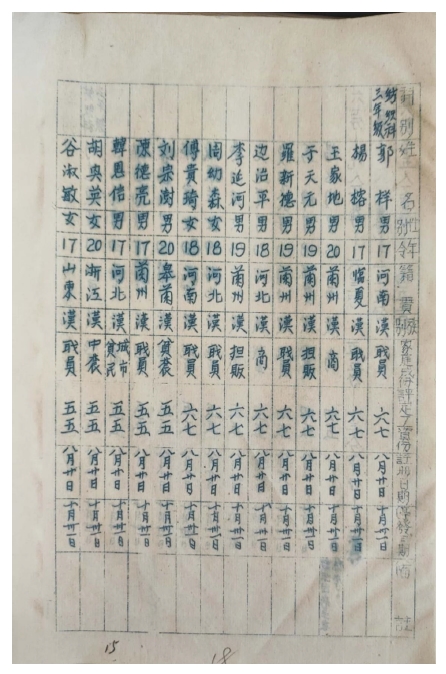 科別 姓名 性別 年齡 籍貫 族別 家庭成份 評定 註冊日期 離校日期 備註
紡織科三年級
郭 祥 男 17 河南 漢 職員 六七 八月廿日 十月卅一日
楊 榕 男 17 寧夏 漢 職員 六七 八月廿日 十月卅一日
王家地 男 20 蘭州 漢 商 六七 八月廿日 十月卅一日
于天尤 男 19 蘭州 漢 担販 六七 八月廿日 十月卅一日
羅新德 男 19 蘭州 漢 職員 六七 八月廿日 十月卅一日
边治平 男 18 河北 漢 商 六七 八月廿日 十月卅一日
李延河 男 19 蘭州 漢 担販 六七 八月廿日 十月卅一日
周幼森 女 18 河北 漢 職員 六七 八月廿日 十月卅一日
傅貴琦 女 18 河南 漢 職員 六七 八月廿日 十月卅一日
刘宗澍 男 20 皋蘭 漢 貧農 五五 八月廿日 十月卅一日
陳德亮 男 17 蘭州 漢 職員 五五 八月廿日 十月卅一日
韓恩信 男 17 河北 漢 城市貧民 五五 八月廿日 十月卅一日
胡奐英 女 20 浙江 漢 中農 五五 八月廿日 十月卅一日
谷淑敏 女 17 山東 漢 職員 五五 八月廿日 十月卅一日
15
18